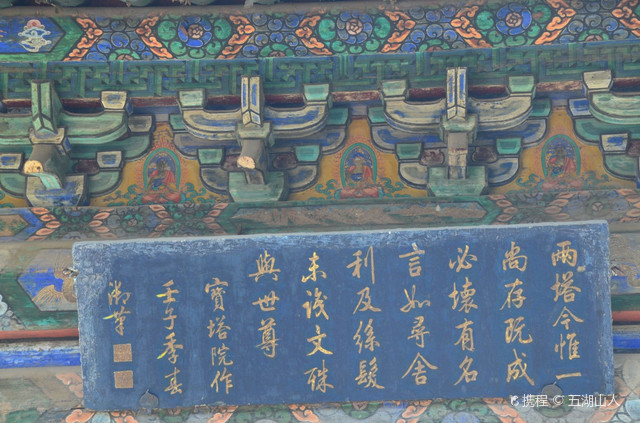 兩塔今惟一
尚存既成
必壞有名
言如尋舍
利及絲髮
未談文殊
與世尊
寶塔院作
壬午季春
御筆
携程 © 五湖山人